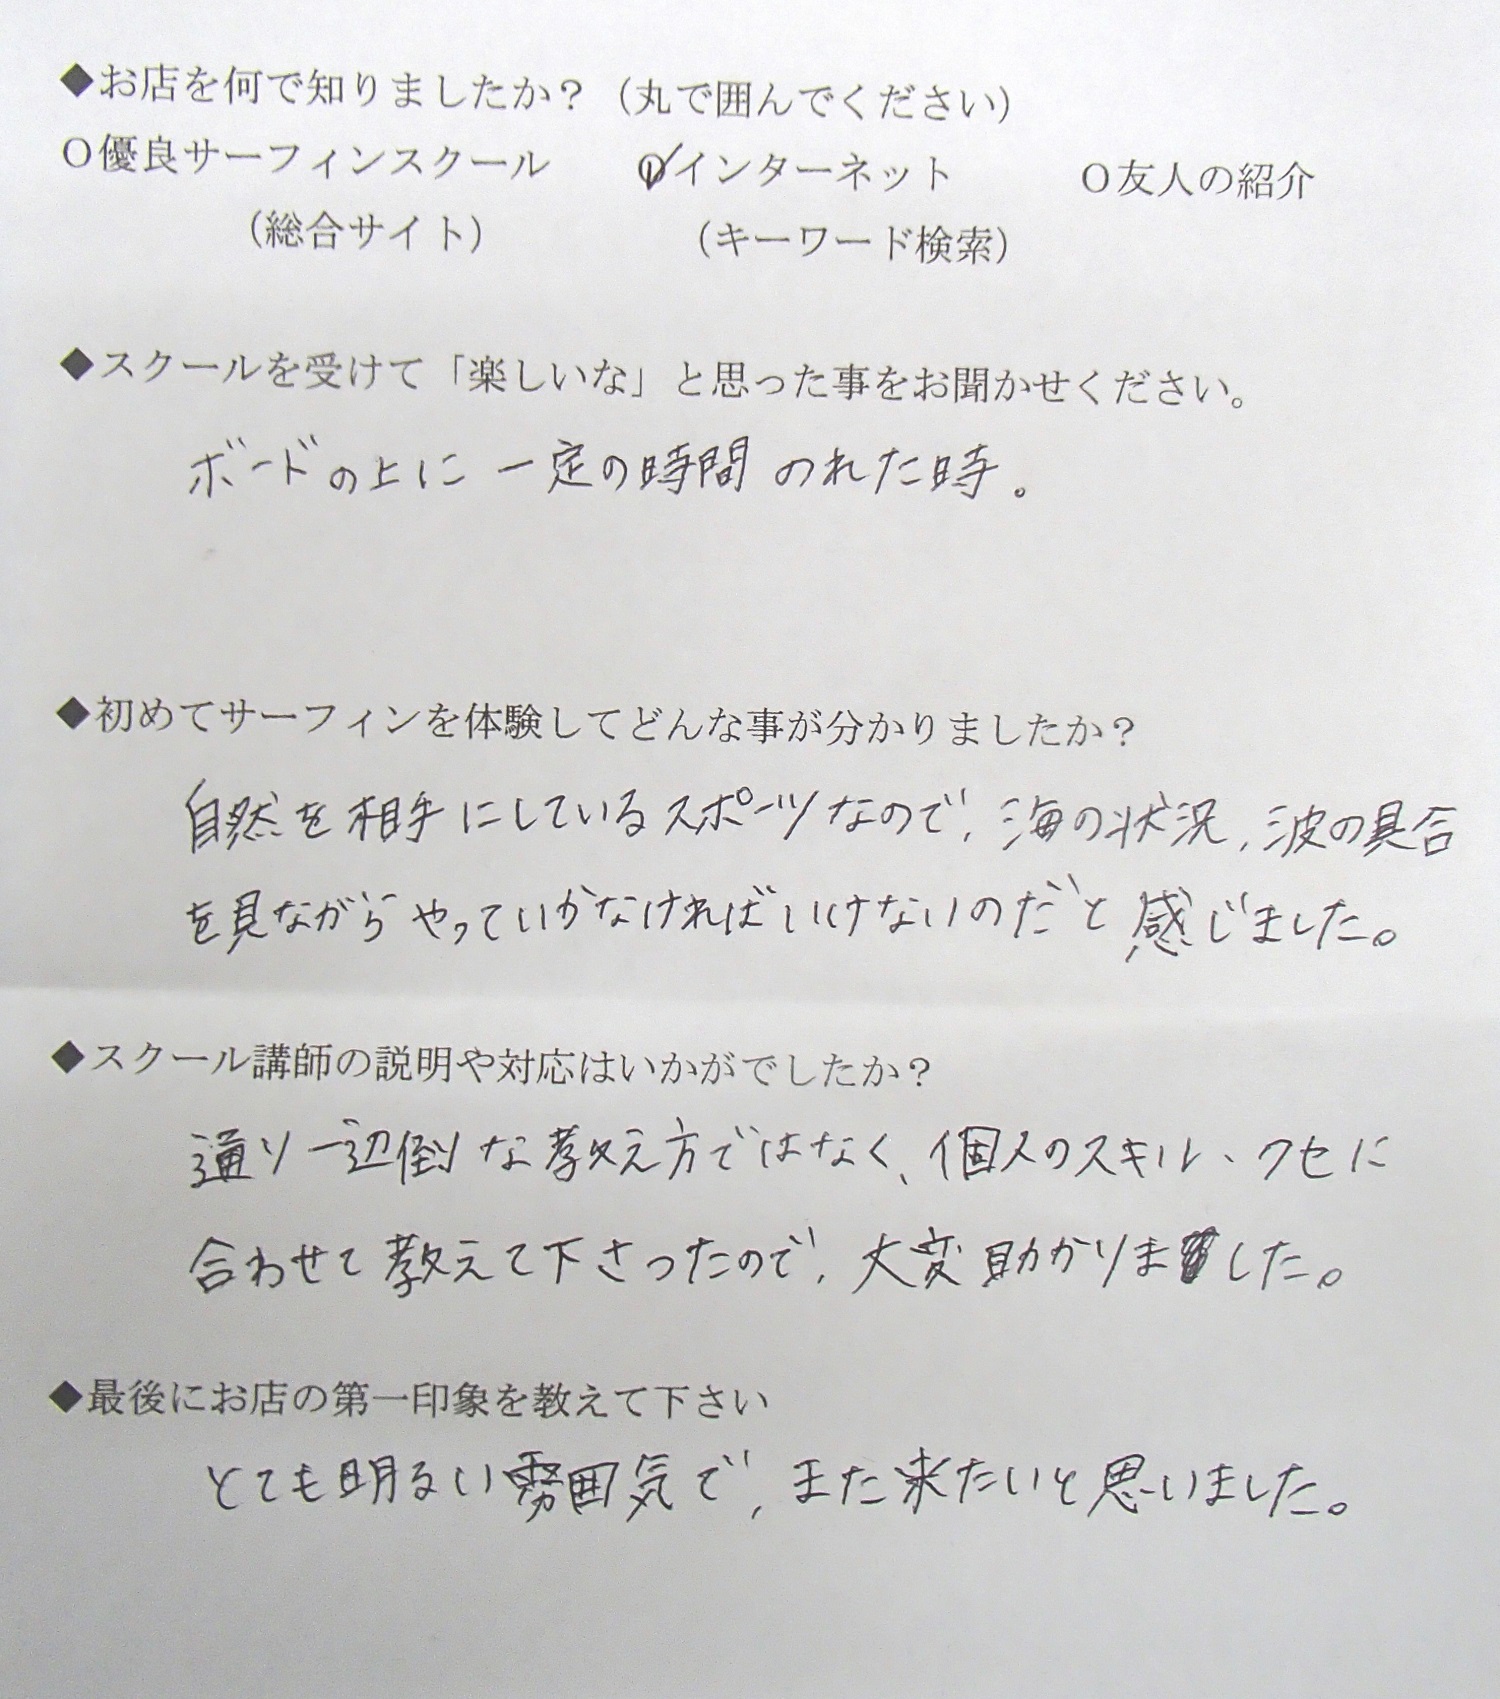 ◆お店を何で知りましたか？（丸で囲んでください）
○優良サーフィンスクール　○✓インターネット　○友人の紹介
（総合サイト）　（キーワード検索）
◆スクールを受けて「楽しいな」と思った事をお聞かせください。
ボードの上に一定の時間のれた時。
◆初めてサーフィンを体験してどんな事が分かりましたか？
自然を相手にしているスポーツなので、海の状況、波の具合
を見ながらやっていかなければいけないのだと感じました。
◆スクール講師の説明や対応はいかがでしたか？
通り一辺倒な教え方ではなく、個人のスキル、クセに
合わせて教えて下さったので、大変助かりました。
◆最後にお店の第一印象を教えて下さい
とても明るい雰囲気で、また来たいと思いました。